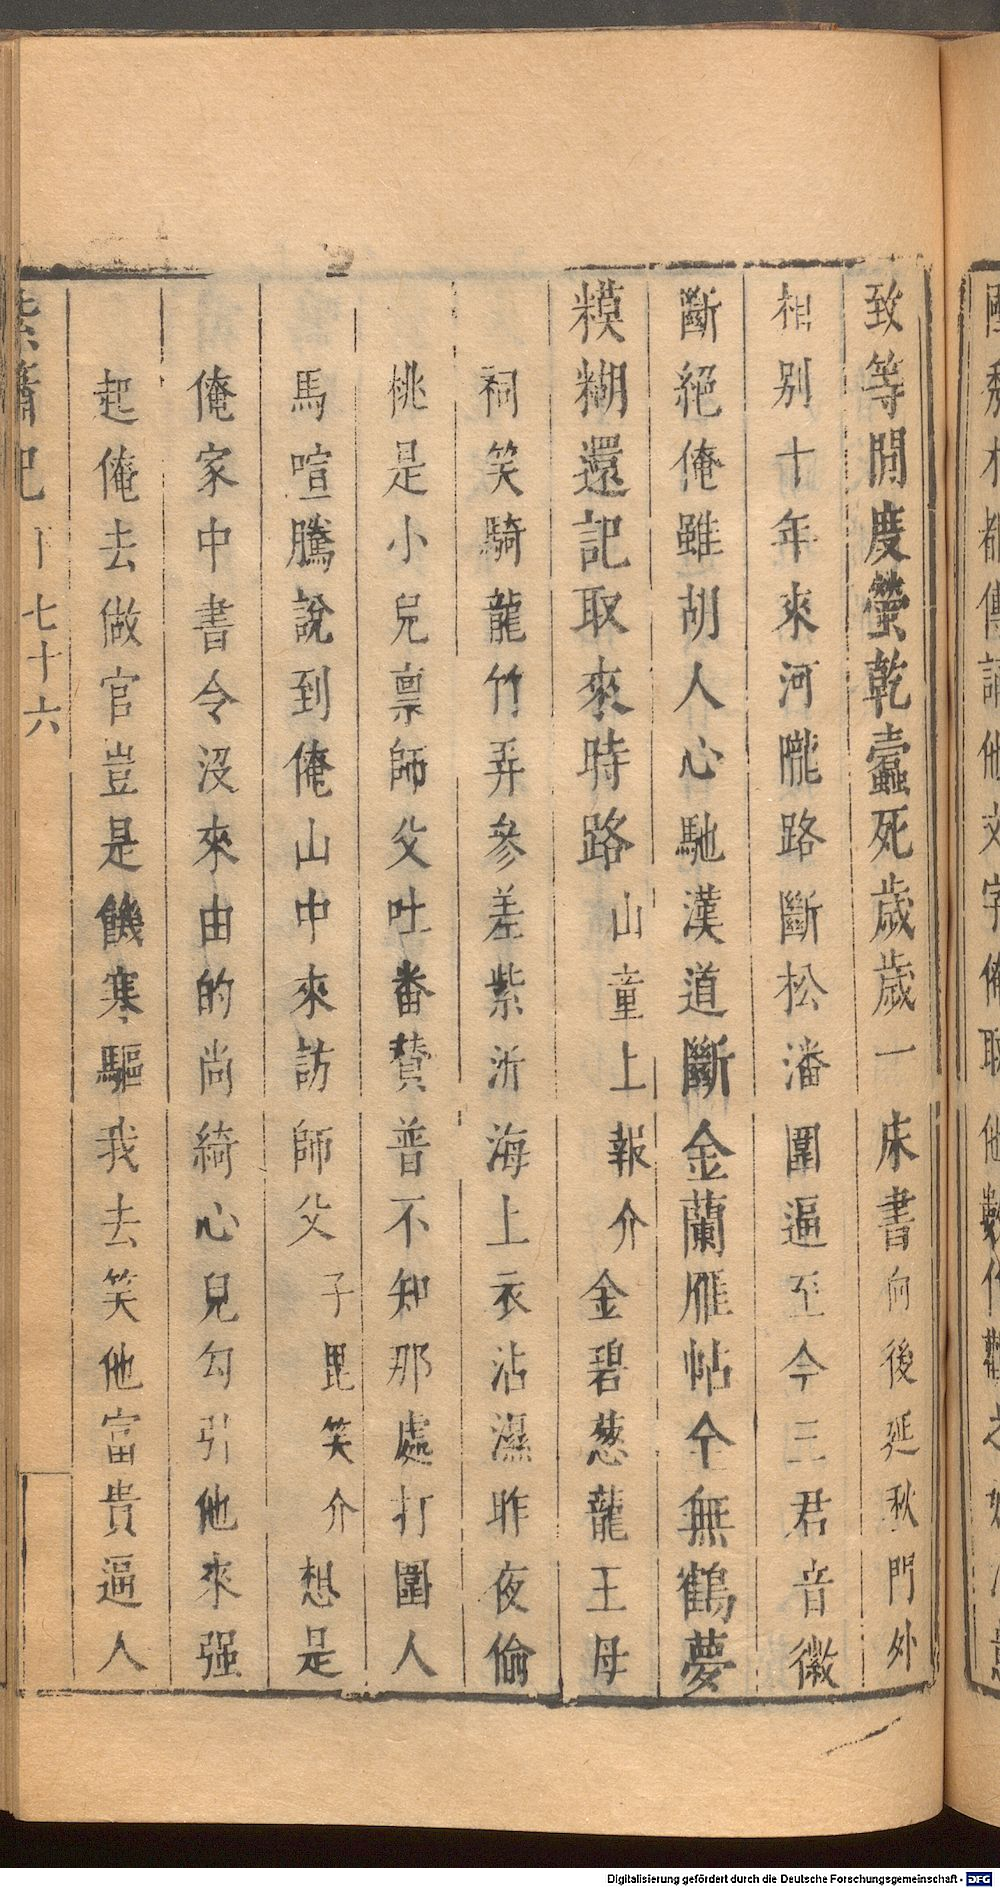 致等閒度螢乾蠹死歲歲一床書向後延秋門外
相別十年來河隴路斷松潘圍逼至今三君音徽
斷絕俺雖胡人心馳漢道斷金蘭雁帖全無鶴夢
糢糊還記取來時路山童上報介金碧葱龍王母
祠笑騎龍竹弄參差紫沂海上衣沾濕昨夜偷
桃是小兒禀師父吐番賛普不知那處打圍人
馬喧騰說到俺山中來訪師父子毘笑介想是
俺家中書令沒來由的尚綺心兒勾引他來强
起俺去做官豈是饑寒驅我去笑他富貴逼人
紫簫記 七十六
Digitalisierung gefördert durch die Deutsche Forschungsgemeinschaft - DFG